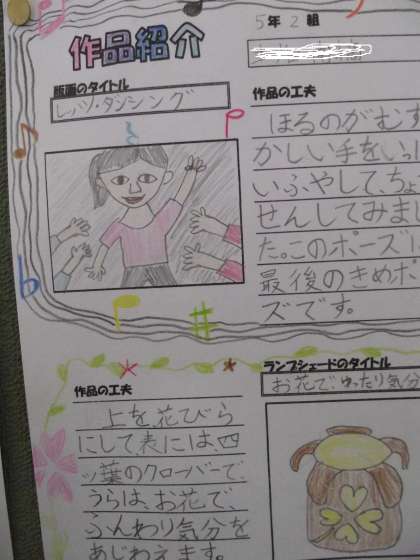 作品紹介
5年2組
版画のタイトル
レッツ・ダンシング
作品の工夫
ほるのがむず
かしい手をいっぱ
いふやして、ちょ
せんしてみまし
た。このポーズ
最後のきめポ
ズです。
作品の工夫
上を、花びら
にして、表には、四
ッ葉のクローバーで、
うらは、お花で、
ふんわり気分を
あじわえます。
ランプシェードのタイトル
お花で、ゆったり気分